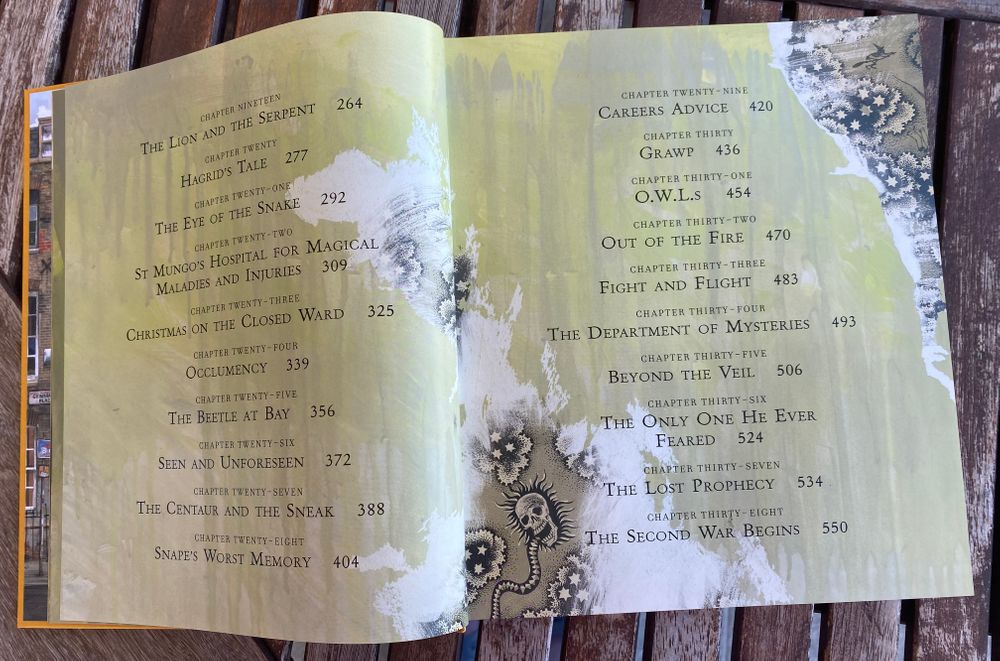 CHAPTER NINETEEN
THE LION AND THE SERPENT 264
CHAPTER TWENTY
HAGRID'S TALE 277
CHAPTER TWENTY-ONE
THE EYE OF THE SNAKE 292
CHAPTER TWENTY-TWO
ST MUNGO'S HOSPITAL FOR MAGICAL
MALADIES AND INJURIES 309
CHAPTER TWENTY-THREE
CHRISTMAS ON THE CLOSED WARD 325
CHAPTER TWENTY-FOUR
OCCLUMENCY 339
CHAPTER TWENTY-FIVE
THE BEETLE AT BAY 356
CHAPTER TWENTY-SIX
SEEN AND UNFORESEEN 372
CHAPTER TWENTY-SEVEN
THE CENTAUR AND THE SNEAK 388
CHAPTER TWENTY-EIGHT
SNAPE'S WORST MEMORY 404
CHAPTER TWENTY-NINE
CAREERS ADVICE 420
CHAPTER THIRTY
GRAWP 436
CHAPTER THIRTY-ONE
O.W.L.s 454
CHAPTER THIRTY-TWO
OUT OF THE FIRE 470
CHAPTER THIRTY-THREE
FIGHT AND FLIGHT 483
CHAPTER THIRTY-FOUR
THE DEPARTMENT OF MYSTERIES 493
CHAPTER THIRTY-FIVE
BEYOND THE VEIL 506
CHAPTER THIRTY-SIX
THE ONLY ONE HE EVER
FEARED 524
CHAPTER THIRTY-SEVEN
THE LOST PROPHECY 534
CHAPTER THIRTY-EIGHT
THE SECOND WAR BEGINS 550